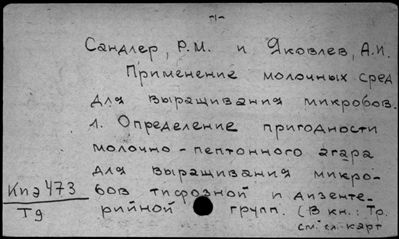 -1-
Сандлер, Р.М. и Яковлев, А.И.
Применение молочных сред
для выращивания микробов.
1. Определение пригодности
молочно-пептонного агара
для выращивания микро-
Кпэ 473
бов тифозной и дизенте-
Т9
рийной групп. (В кн.: Тр.
см. сл. карт